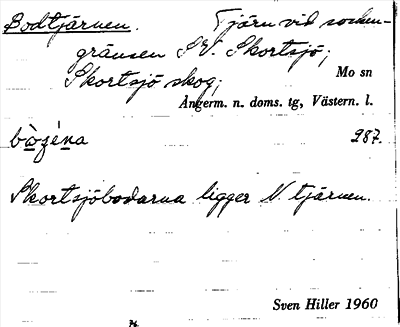 Bodtjärnen. Tjärn vid socken-
gränsen S.V. Skortsjö;
Skortsjö skog; Mo sn
Ångerm. n. doms. tg, Västern. l.
287.
Skortsjöbodarna ligger N. tjärnen.
Sven Hiller 1960